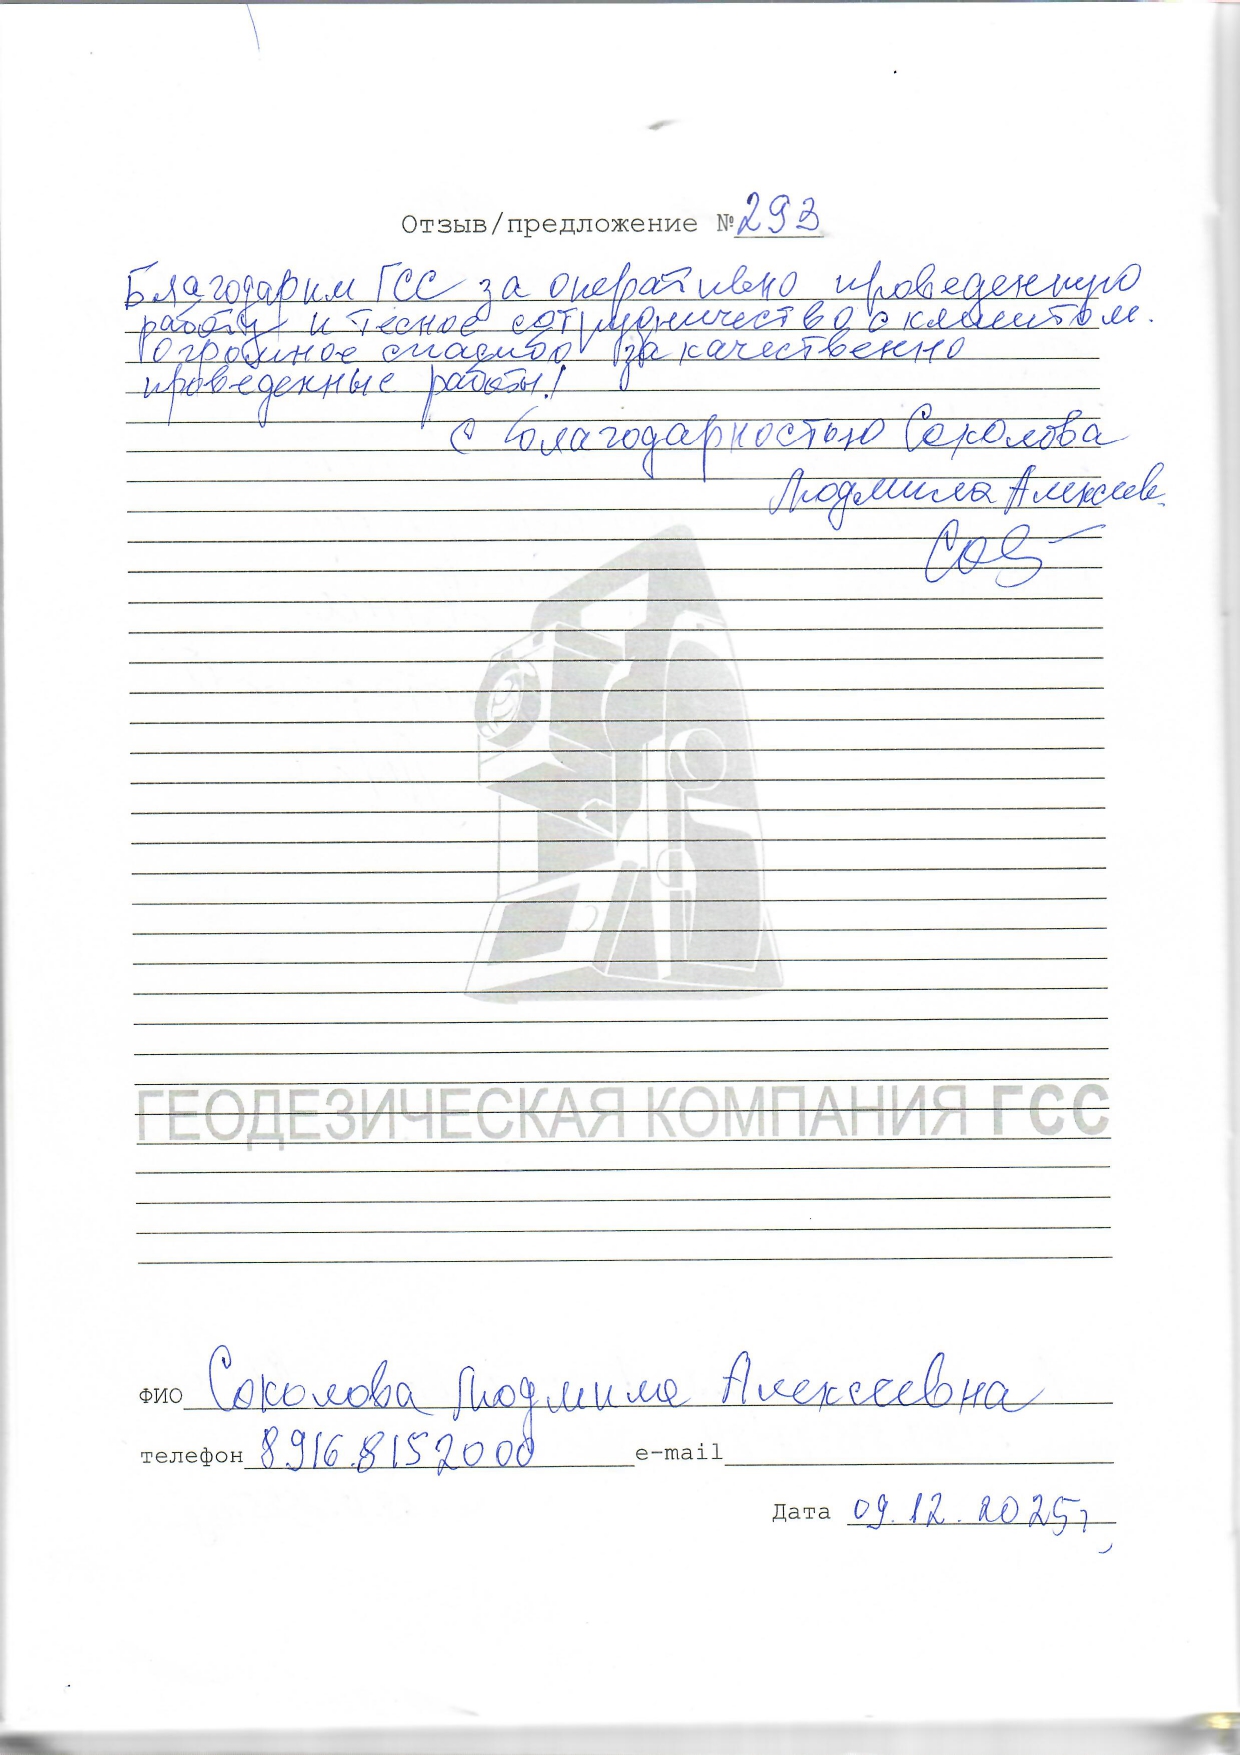 Отзыв/предложение № 293
Благодарим ГСС за оперативно проведенную
работу и тесное сотрудничество с клиентом.
Огромное спасибо за качественно
проведенные работы!
С благодарностью Соколова
Людмила Алексеев.
ГЕОДЕЗИЧЕСКАЯ КОМПАНИЯ ГСС
ФИО Соколова Людмила Алексеевна
телефон 8916.8152000 e-mail
Дата 09.12.2025г